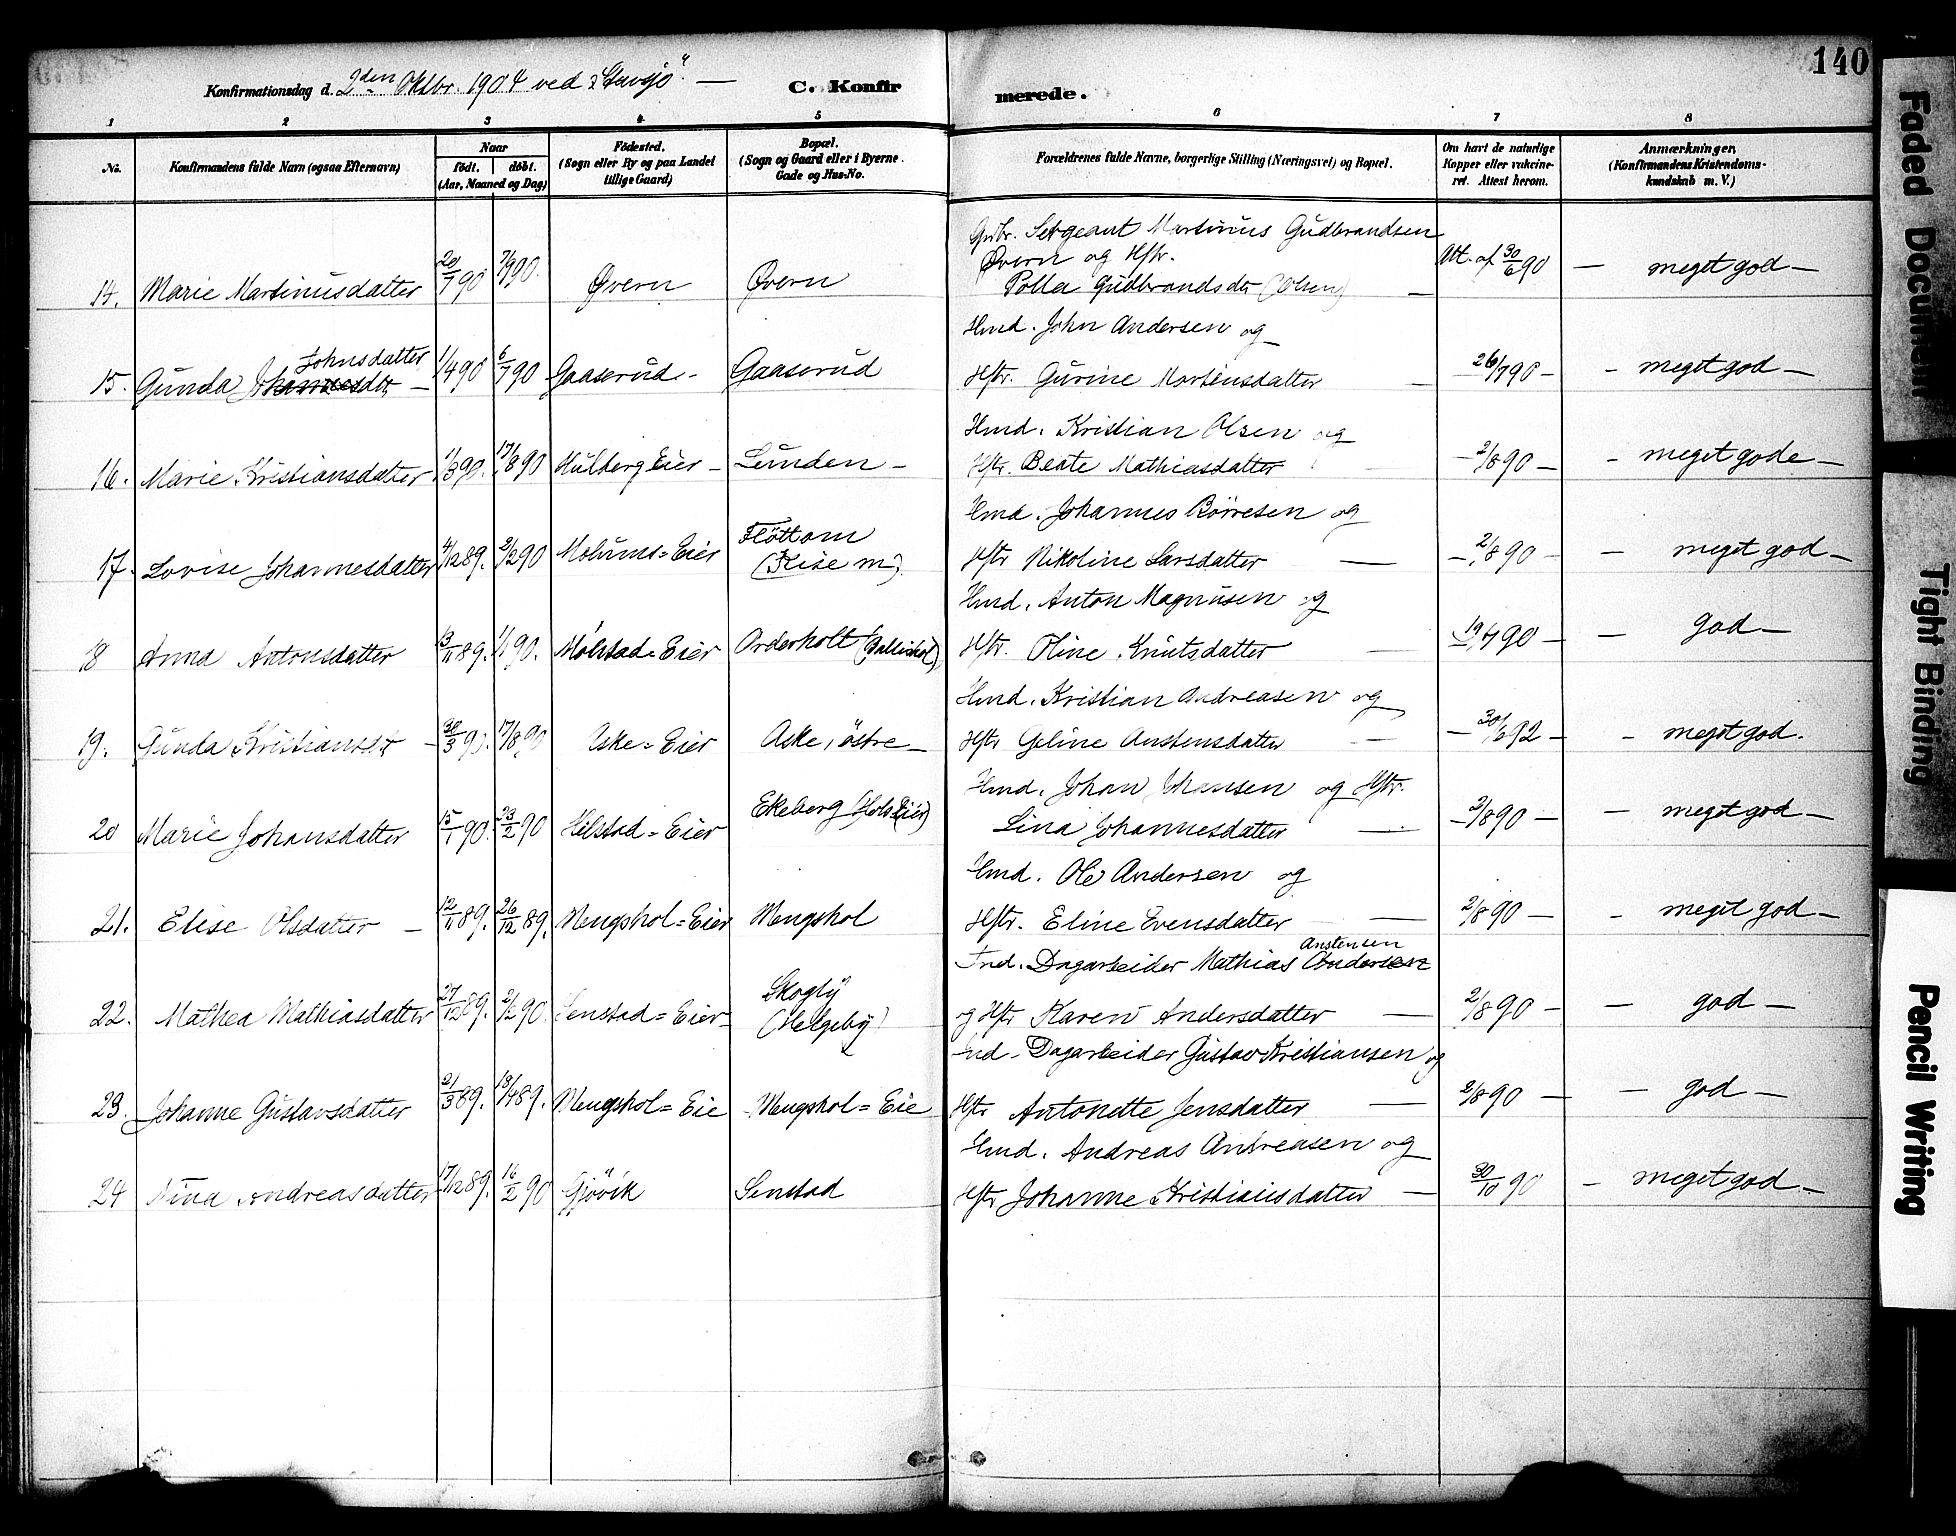 140
Konfirmationsdag d. 2den Oktbr. 1904 ved "Stavsjø" — C. Konfirmerede.
1 2 3 4 5 6 7 8
No. Konfirmandens fulde Navn (ogsaa Efternavn) Naar födt. döbt. (Aar, Maaned og Dag) Födested. (Sogn eller By og paa Landet tillige Gaard) Bopæl. (Sogn og Gaard eller i Byerne Gade og Hus-No. Forældrenes fulde Navne, borgerlige Stilling (Næringsvei) og Bopæl. Om havt de naturlige Kopper eller vakcineret. Attest herom. Anmærkninger, (Konfirmandens Kristendomskundskab m. V.)
14. Marie Martinusdatter 20/7 90 7/9 90. Øvern Øvern Gbr. Sergeant Martinus Gudbrandsen Øvern og Hstr. Polla Gudbrandsdtr (Olsen) — Att. af 30/6 90 — meget god —
15. Gunda Johannesdtr Johnsdatter — 1/4 90 6/7 90 Gaaserud - Gaaserud Hmd. John Andersen og Hstr. Gurine Martinsdatter — 26/7 90 — — meget god —
16. Marie Kristiansdatter 11/3 90. 17/8 90 Hulberg Eier — Lunden — Hmd. Kristian Olsen og Hstr. Beate Mathiasdatter — 2/8 90 — — meget gode —
17. Lovise Johannesdatter 4/12 89. 2/2 90 Molums = Eier Fløttom (Kise m) Hmd. Johannes Börresen og Hstr Nikoline Larsdatter — 2/8 90 — — meget god —
18 Anna Antonsdatter 13/11 89. 1/1 90. Molstad = Eier Orderholt Hmd. Anton Magnusen og Hstr. Oline Knutsdatter — 19/7 90 — — god —
19. Gunda Kristiansdtr — 30/3 90. 17/8 90 Aske = Eier Aske, östre — Hmd. Kristian Andreasen og Hstr Geline Anstensdatter — 30/6 92 — — meget god.
20 Marie Johansdatter 15/1 90. 23/2 90 Helstad = Eier Ekeberg (Hols Eier) Hmd. Johan Johansen og Hstr. Lina Johannesdatter — 2/8 90 — — meget god —
21. Elise Olsdatter — 12/11 89. 26/12 89. Mengshol = Eier Mengshol Hmd. Ole Andersen og Hstr. Eline Evensdatter — 2/8 90 — — meget god —
22. Mathea Mathiasdatter 27/12 89. 2/2 90. Senstad = Eier - Skogly (Helgeby) Ind. Dagarbeider Mathias Andersen Anstensen og Hstr Karen Andersdatter — 2/8 90 — — god —
23. Johanne Gustavsdatter 21/3 89. 18/4 89. Mengshol = Eie Mengshol = Eie Ind. Dagarbeider Gustav Kristiansen og Hstr Antonette Jensdatter — 2/8 90 — — god —
24 Nina Andreasdatter 17/12 89. 16/2 90 Gjövik Senstad Hmd. Andreas Andreasen og Hstr Johanne Kristiansdatter — 30/10 90 — meget god —
Faded Document
Tight Binding
Pencil Writing